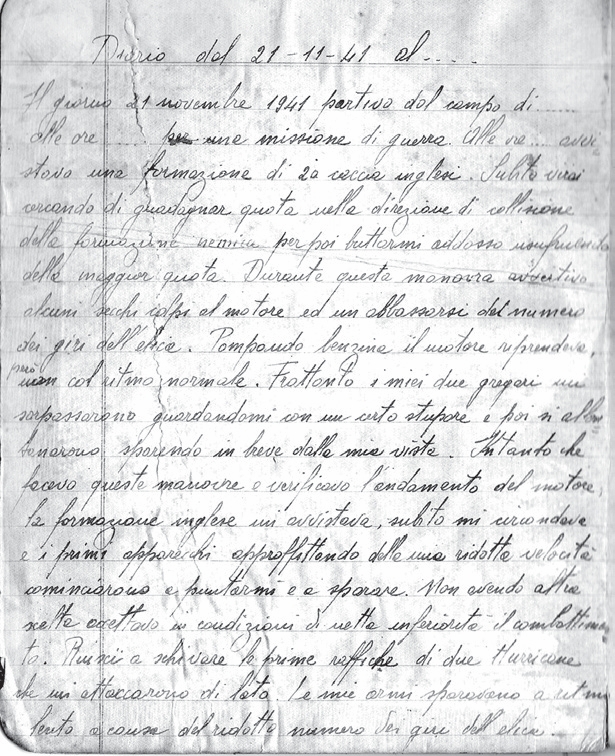 Diario dal 21-11-41 al ....
Il giorno 21 novembre 1941 partivo dal campo di ......
alle ore ...... per una missione di guerra. Alle ore ... avvi-
stavo una formazione di 20 caccia inglesi. Subito virai
cercando di guadagnar quota nella direzione di collisione
della formazione nemica per poi buttarmi addosso usufruendo
della maggior quota. Durante questa manovra avvertivo
alcuni secchi colpi al motore ed un abbassarsi del numero
dei giri dell'elica. Pompando benzina il motore riprendeva,
però non col ritmo normale. Frattanto i miei due gregari mi
sorpassarono guardandomi con un certo stupore e poi si allon-
tanarono, sparendo in breve dalla mia vista. Intanto che
facevo queste manovre e verificavo l'andamento del motore,
la formazione inglese mi avvistava, subito mi circondava
e i primi apparecchi approffittando della mia ridotta velocità
cominciarono a puntarmi e a sparare. Non avendo altra
scelta accettavo in condizioni di netta inferiorità il combattimen
to. Riuscii a schivare le prime raffiche di due Hurricane
che mi attaccarono di lato. Le mie armi sparavano a ritmo
lento a causa del ridotto numero dei giri dell'elica.